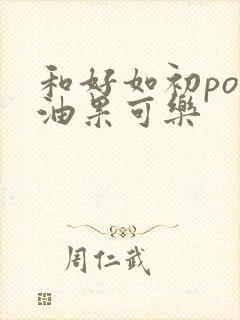 和好如初po
油果可樂
周仁武